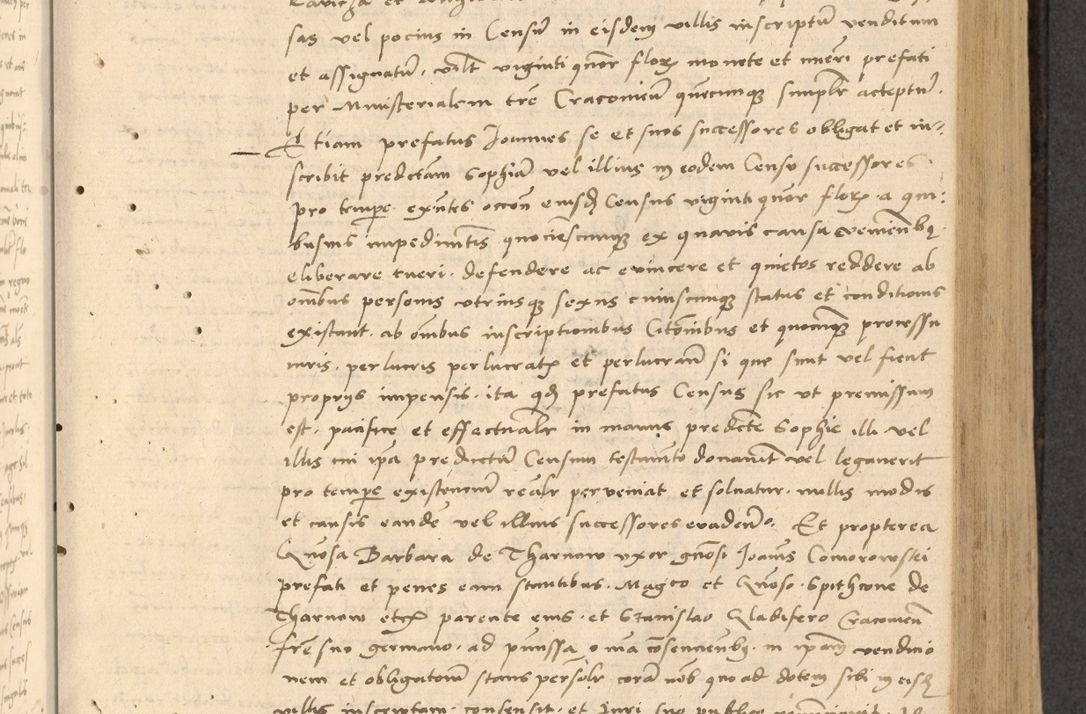 sas vel pocius in Censu in eisdem villis inscriptu venditum
et assignatu. vilt viginti quor flor monete et nueri prefati
per Ministerialem tre Cracovien quecunque simplr acceptu.
Etiam prefatus Joannes se et suos successores obligat et in-
scribit predctam Sophia vel illius in eodem Censu successores
pro tempe exntes occon eiusd Census viginti quor flor a qui-
busuis impedimtis quociescunque ex quavis causa venienbq
eliberare tueri. defendere ac evincere et quietos reddere ab
omibus personis vtriusque sexus cuiuscunque status et conditionis
existant. ab omibus inscriptionibus Citonibus et quocunque processu
iuris. perlucris perlucratis et perlucrann si que sunt vel fient
proprys impensis. ita qd prefatus Census sic vt premissum
est. pacifice et effectualr in manus predcte Sophie illi vel
illis cui ipa predictu Censum testamto donauit vel legauerit
pro tempe existenciu realr perveniat et soluatur. nullis modis
et causis eande vel illius successores evadendo. Et propterea
Gnosa Barbara de Tharnow vxor gnosi Joanis Comorowski
prefati et penes eam stantibus. Magco et Gnoso Spithcone de
Tharnow etc parente eius. et Stanislao Gladifero Cracovien
fre suo germano. ad pmissa omia consencienbq. in ipam vendicio
nem et obligatom stans persolr cora nob quo ad dotem sibi in eisd
villis inscriptam. consensit. et Juri suo